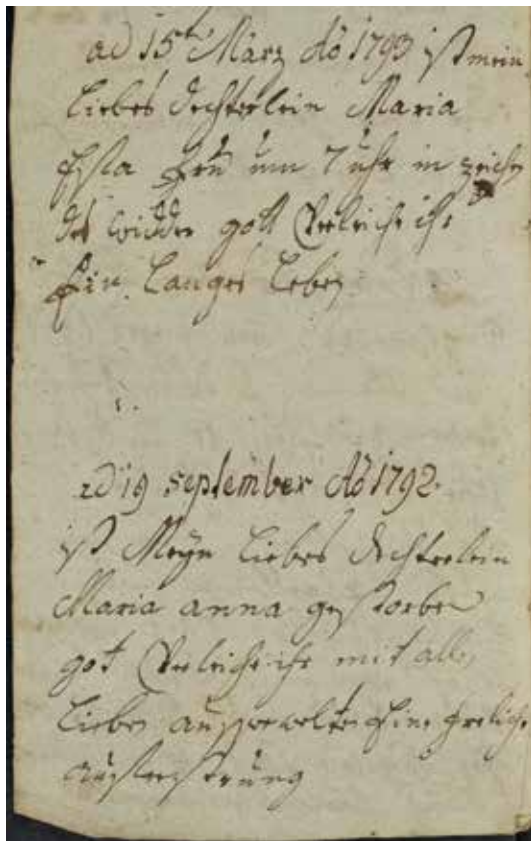 ad 15t März Ao 1793 ist mein
liebes dechterlein Maria
frü um 7 uhr in zeichen
des wider gott Verleich ihr
Ein langes leben
ad 19 september Ao 1792
ist Meyn liebes dechterlein
Maria anna gestorben
got Verleiche ihr mit allen
lieben ausserwelten Eine freliche
auffersterung